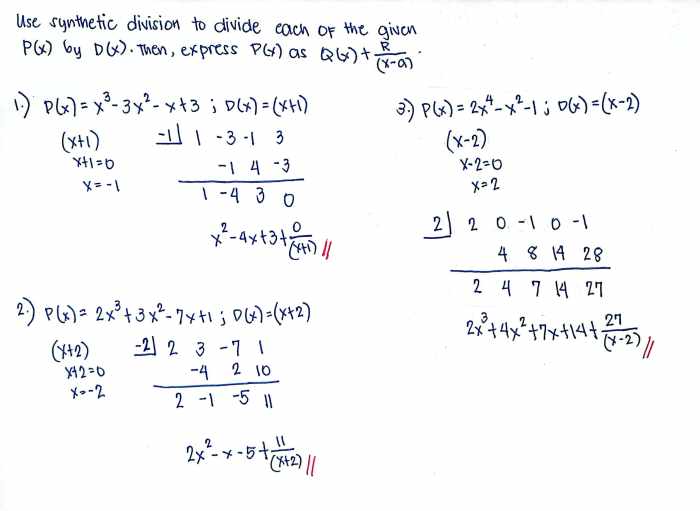 Use synthetic division to divide each of the given
P(x) by D(x). Then, express P(x) as Q(x) + R/(x-a).
1.) P(x) = x³ - 3x² - x + 3 ; D(x) = (x+1)
(x+1)
x+1=0
x = -1
-1| 1 -3 -1 3
-1 4 -3
1 -4 3 0
x² - 4x + 3 + 0/(x+1) //
2.) P(x) = 2x³ + 3x² - 7x + 1 ; D(x) = (x+2)
(x+2)
x+2=0
x = -2
-2| 2 3 -7 1
-4 2 10
2 -1 -5 11
2x² - x - 5 + 11/(x+2) //
3.) P(x) = 2x⁴ - x² - 1 ; D(x) = (x-2)
(x-2)
x-2=0
x=2
2| 2 0 -1 0 -1
4 8 14 28
2 4 7 14 27
2x³ + 4x² + 7x + 14 + 27/(x-2) //